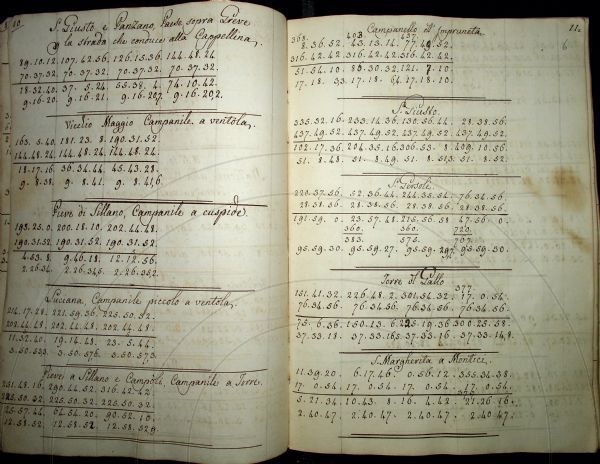 N. 10.
S. Giusto e Panzano, Paese sopra Greve
la strada che conduce alla Cappellina.
89.10.12. 107.42.56. 126.15.36. 144.48.24.
70.37.32. 70.37.32. 70.37.32. 70.37.32.
18.32.40. 37.5.24. 55.38.4. 74.10.42.
9.16.20. 9.16.21. 9.16.20⅔. 9.16.20,2.
Vicchio Maggio Campanile a ventola.
163.5.40. 181.23.8. 190.31.52.
144.48.24. 144.48.24. 144.48.24.
18.17.16. 36.34.44. 45.43.28.
9.8.38. 9.8.41. 9.8.41,6.
Pieve di Sillano, Campanile a cuspide.
195.25.0. 200.18.10. 202.44.48.
190.31.52. 190.31.52. 190.31.52.
4.53.8. 9.46.18. 12.12.56.
2.26.34. 2.26.34,5. 2.26.35,2.
Luciana, Campanile piccolo a ventola.
214.17.28. 221.59.36. 225.50.32.
202.44.48. 202.44.48. 202.44.48.
11.32.40. 19.14.48. 23.5.44.
3.50.53,3. 3.50.57,6. 3.50.57,3.
Pieve a Sillano e Campoli, Campanile a Torre.
251.48.16. 290.44.52. 316.42.42.
225.50.32. 225.50.32. 225.50.32.
25.57.44. 64.54.20. 90.52.10.
12.58.52. 12.58.52. 12.58.52,9.
11.
Campanello dl'Impruneta.
368. 403. 437.
8.36.52. 43.13.14. 77.49.52.
316.42.42. 316.42.42. 316.42.42.
51.54.10. 86.30.32. 121.7.10.
17.18.3,3. 17.18.6,4. 17.18.10.
S. Giusto.
335.32.16. 233.14.36. 130.56.44. 28.38.56.
437.49.52. 437.49.52. 437.49.52. 437.49.52.
102.17.36. 204.35.16. 306.53.8. 409.10.56.
51.8.48. 51.8.49. 51.8.51,3. 51.8.52.
S. Gersolè.
220.37.56. 52.36.44. 244.35.54. 76.34.56.
28.38.56. 28.38.56. 28.38.56. 28.38.56.
191.59.0. 23.57.48. 215.56.58. 47.56.0.
360. 360. 720.
383. 575. 767.
95.59.30. 95.59.27. 95.59.29⅔. 95.59.30.
Torre dl Gallo
377.
151.41.32. 226.48.2. 301.54.32. 17.0.54.
76.34.56. 76.34.56. 76.34.56. 76.34.56.
75.6.36. 150.13.6. 225.19.36. 300.25.58.
37.33.18. 37.33.16,5. 37.33.16. 37.33.14,8.
S. Margherita a Montici.
11.39.20. 6.17.46. 0.56.12. 355.34.38.
17.0.54. 17.0.54. 17.0.54. 17.0.54.
5.21.34. 10.43.8. 16.4.42. 21.26.16.
2.40.47. 2.40.47. 2.40.47. 2.40.47.